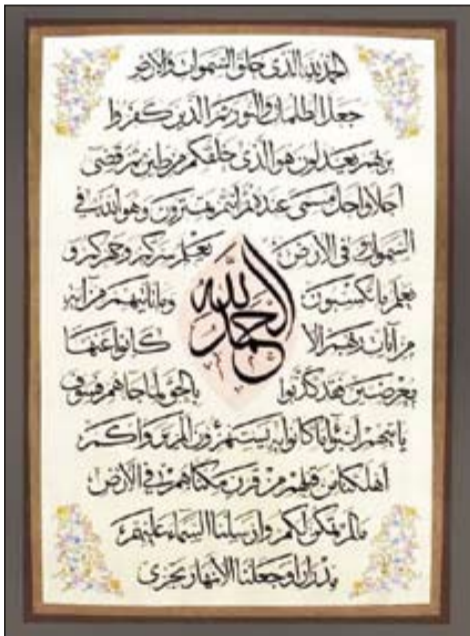 الحمد لله الذي خلق السموات والأرض
جعل الظلمات والنور ثم الذين كفروا
بربهم يعدلون هو الذي خلقكم من طين ثم قضى
أجلا وأجل مسمى عنده ثم أنتم تمترون وهو الله في
السموات وفي الأرض يعلم سركم وجهركم و
يعلم ما تكسبون وما تأتيهم من آية
الحمد لله
من آيات ربهم إلا كانوا عنها
معرضين فقد كذبوا بالحق لما جاءهم فسوف
يأتيهم أنبؤا ما كانوا به يستهزؤن ألم يروا كم
أهلكنا من قبلهم من قرن مكناهم في الأرض
ما لم نمكن لكم وأرسلنا السماء عليهم
مدرارا وجعلنا الأنهار تجري